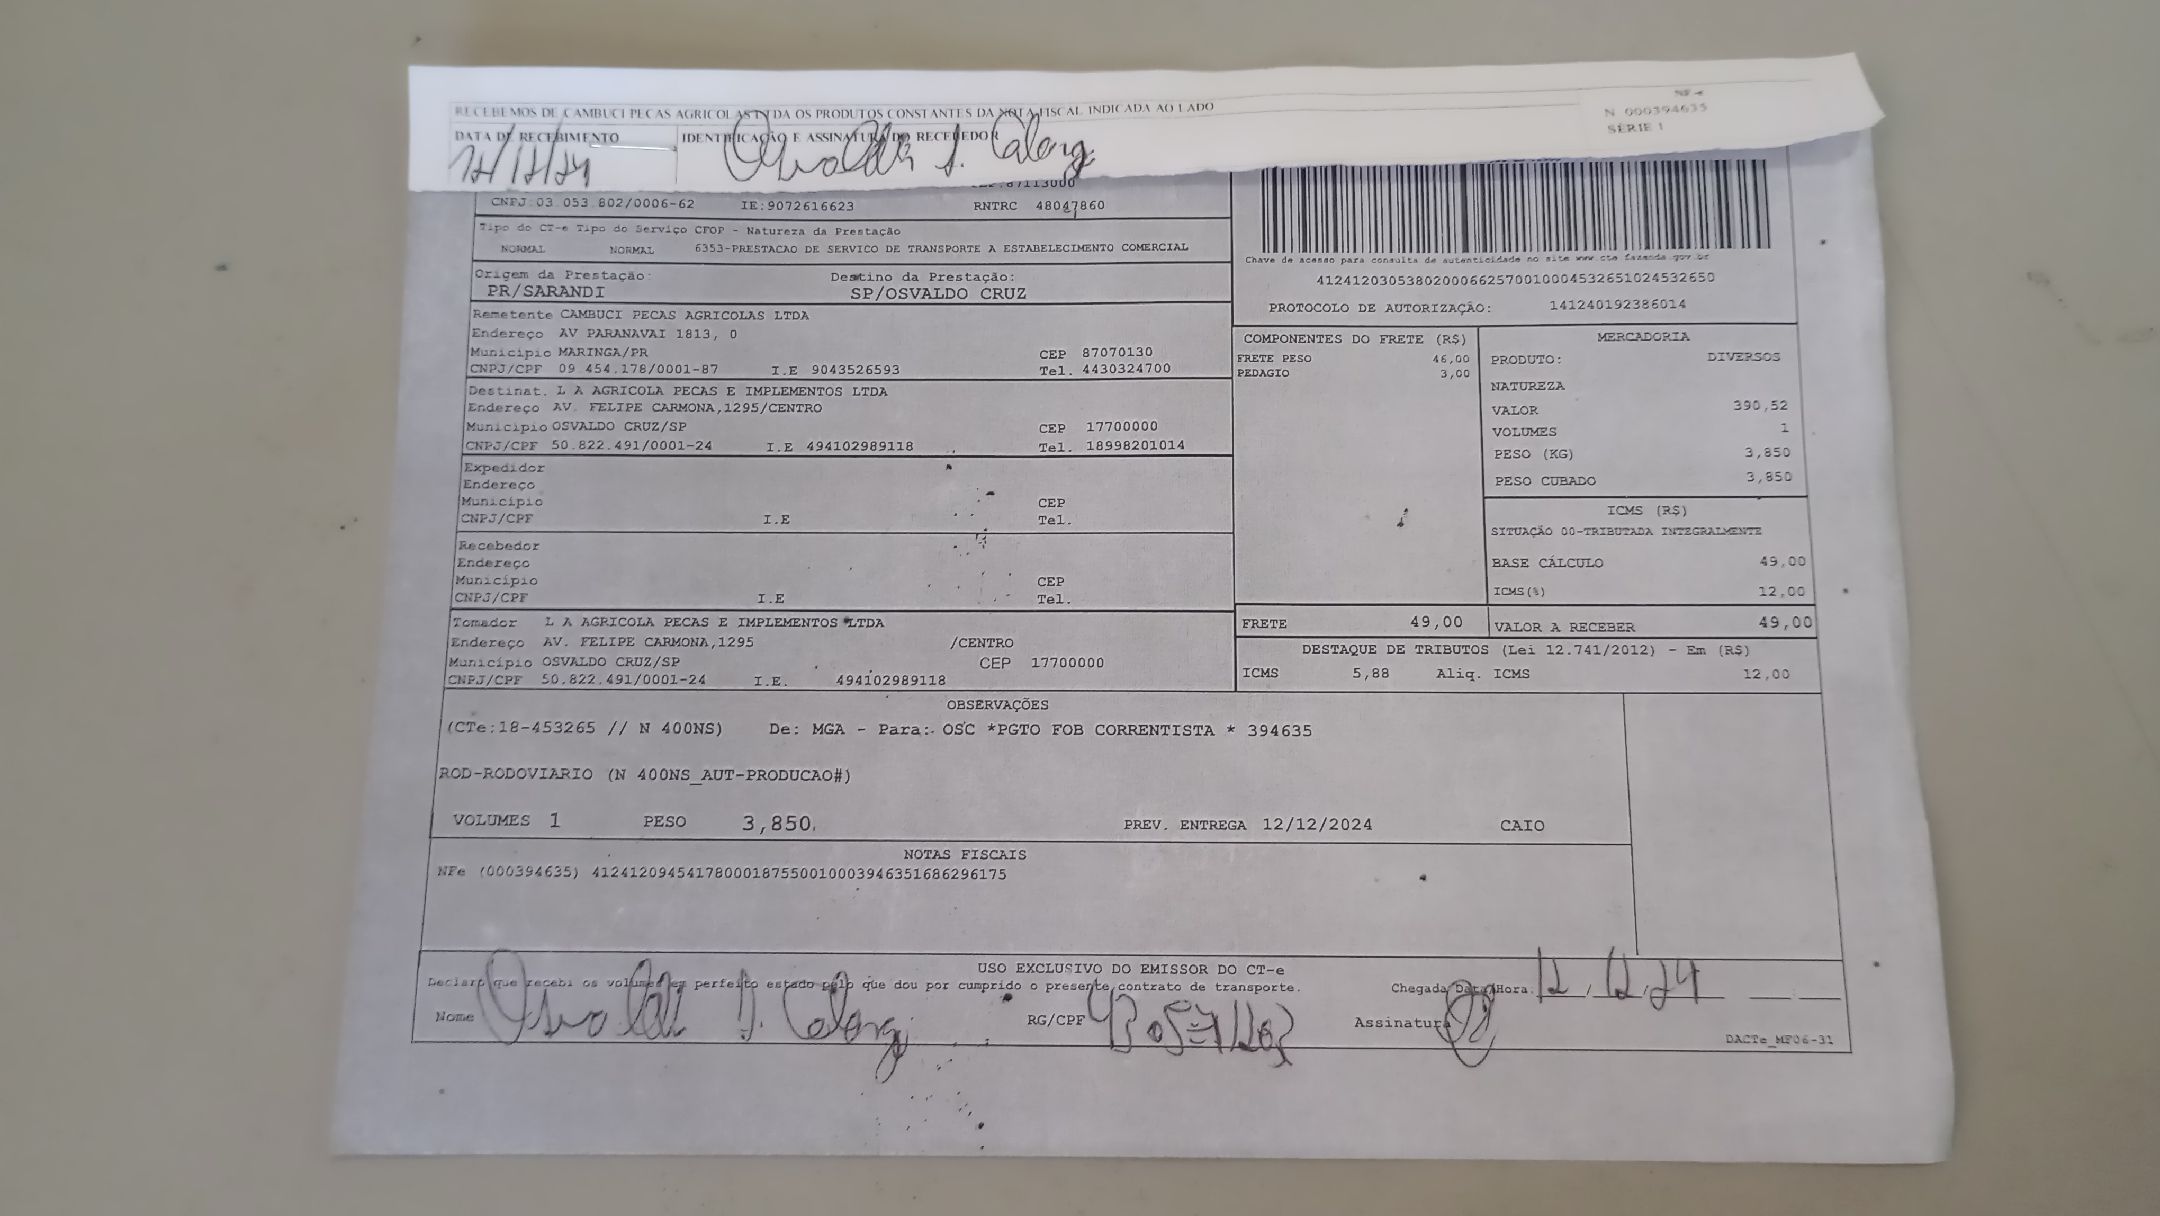 RECEBEMOS DE CAMBUCI PECAS AGRICOLAS LTDA OS PRODUTOS CONSTANTES DA NOTA FISCAL INDICADA AO LADO
NF-e
N 000394635
SÉRIE 1
DATA DE RECEBIMENTO IDENTIFICAÇÃO E ASSINATURA DO RECEBEDOR
12/12/24
CNPJ:03.053.802/0006-62 IE:9072616623 RNTRC 48047860
Tipo do CT-e Tipo do Serviço CFOP - Natureza da Prestação
NORMAL NORMAL 6353-PRESTACAO DE SERVICO DE TRANSPORTE A ESTABELECIMENTO COMERCIAL
Chave de acesso para consulta de autenticidade no site www.cte.fazenda.gov.br
41241203053802000662570010004532651024532650
PROTOCOLO DE AUTORIZAÇÃO: 141240192386014
Origem da Prestação: Destino da Prestação:
PR/SARANDI SP/OSVALDO CRUZ
Remetente CAMBUCI PECAS AGRICOLAS LTDA
Endereço AV PARANAVAI 1813, 0
Município MARINGA/PR CEP 87070130
CNPJ/CPF 09.454.178/0001-87 I.E 9043526593 Tel. 4430324700
Destinat. L A AGRICOLA PECAS E IMPLEMENTOS LTDA
Endereço AV. FELIPE CARMONA,1295/CENTRO
Município OSVALDO CRUZ/SP CEP 17700000
CNPJ/CPF 50.822.491/0001-24 I.E 494102989118 Tel. 18998201014
Expedidor
Endereço
Município CEP
CNPJ/CPF I.E Tel.
Recebedor
Endereço
Município CEP
CNPJ/CPF I.E Tel.
Tomador L A AGRICOLA PECAS E IMPLEMENTOS LTDA
Endereço AV. FELIPE CARMONA,1295 /CENTRO
Município OSVALDO CRUZ/SP CEP 17700000
CNPJ/CPF 50.822.491/0001-24 I.E. 494102989118
COMPONENTES DO FRETE (R$)
FRETE PESO 46,00
PEDAGIO 3,00
MERCADORIA
PRODUTO: DIVERSOS
NATUREZA
VALOR 390,52
VOLUMES 1
PESO (KG) 3,850
PESO CUBADO 3,850
ICMS (R$)
SITUAÇÃO 00-TRIBUTADA INTEGRALMENTE
BASE CÁLCULO 49,00
ICMS(%) 12,00
FRETE 49,00 VALOR A RECEBER 49,00
DESTAQUE DE TRIBUTOS (Lei 12.741/2012) - Em (R$)
ICMS 5,88 Aliq. ICMS 12,00
OBSERVAÇÕES
(CTe:18-453265 // N 400NS) De: MGA - Para: OSC *PGTO FOB CORRENTISTA * 394635
ROD-RODOVIARIO (N 400NS_AUT-PRODUCAO#)
VOLUMES 1 PESO 3,850 PREV. ENTREGA 12/12/2024 CAIO
NOTAS FISCAIS
NFe (000394635) 41241209454178000187550010003946351686296175
USO EXCLUSIVO DO EMISSOR DO CT-e
Declaro que recebi os volumes em perfeito estado pelo que dou por cumprido o presente contrato de transporte.
Chegada Data/Hora: 12/12/24
Nome RG/CPF Assinatura
DACTe_MF06-31